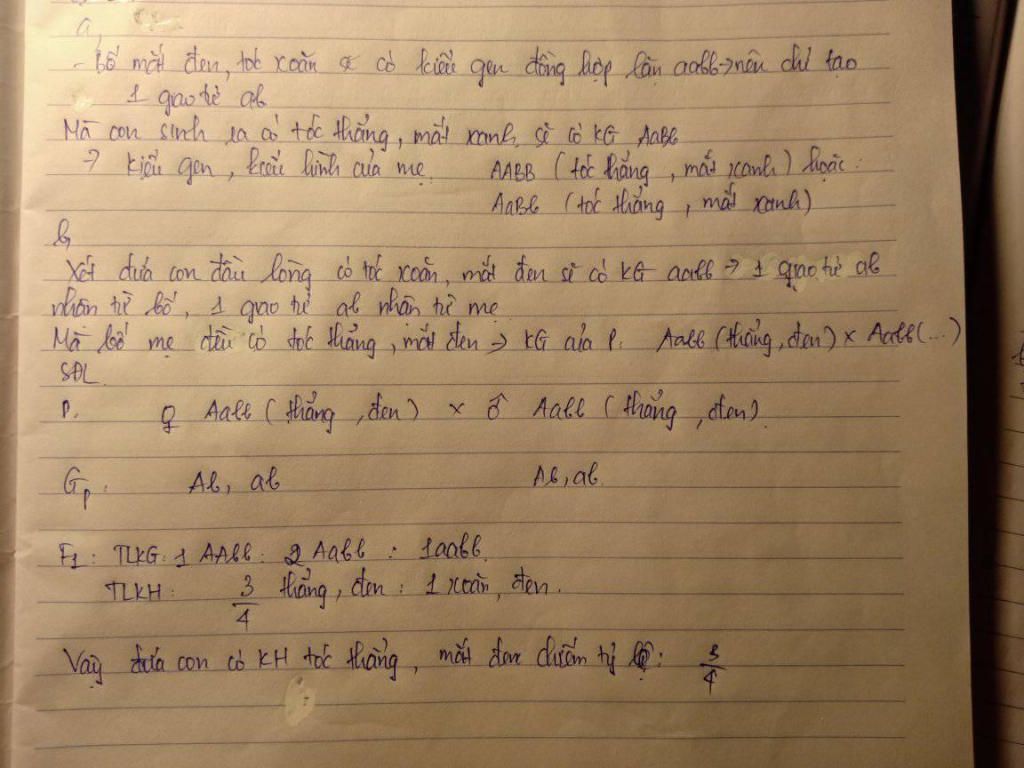 a,
- Bố mắt đen, tóc xoăn có kiểu gen đồng hợp lặn aabb → nên chỉ tạo
1 giao tử ab
Mà con sinh ra có tóc thẳng, mắt xanh sẽ có KG AaBb
→ kiểu gen, kiểu hình của mẹ. AABB (tóc thẳng, mắt xanh) hoặc:
AaBb (tóc thẳng, mắt xanh)
b,
Xét đứa con đầu lòng có tóc xoăn, mắt đen sẽ có KG aabb → 1 giao tử ab
nhận từ bố, 1 giao tử ab nhận từ mẹ
Mà bố mẹ đều có tóc thẳng, mắt đen → KG của P: Aabb (thẳng, đen) × Aabb (...)
SĐL
P. ♀ Aabb (thẳng, đen) × ♂ Aabb (thẳng, đen)
Gp: Ab, ab Ab, ab
F1: TLKG: 1 AAbb: 2 Aabb : 1aabb.
TLKH: 3/4 thẳng, đen : 1 xoăn, đen.
Vậy đứa con có KH tóc thẳng, mắt đen chiếm tỷ lệ: 3/4